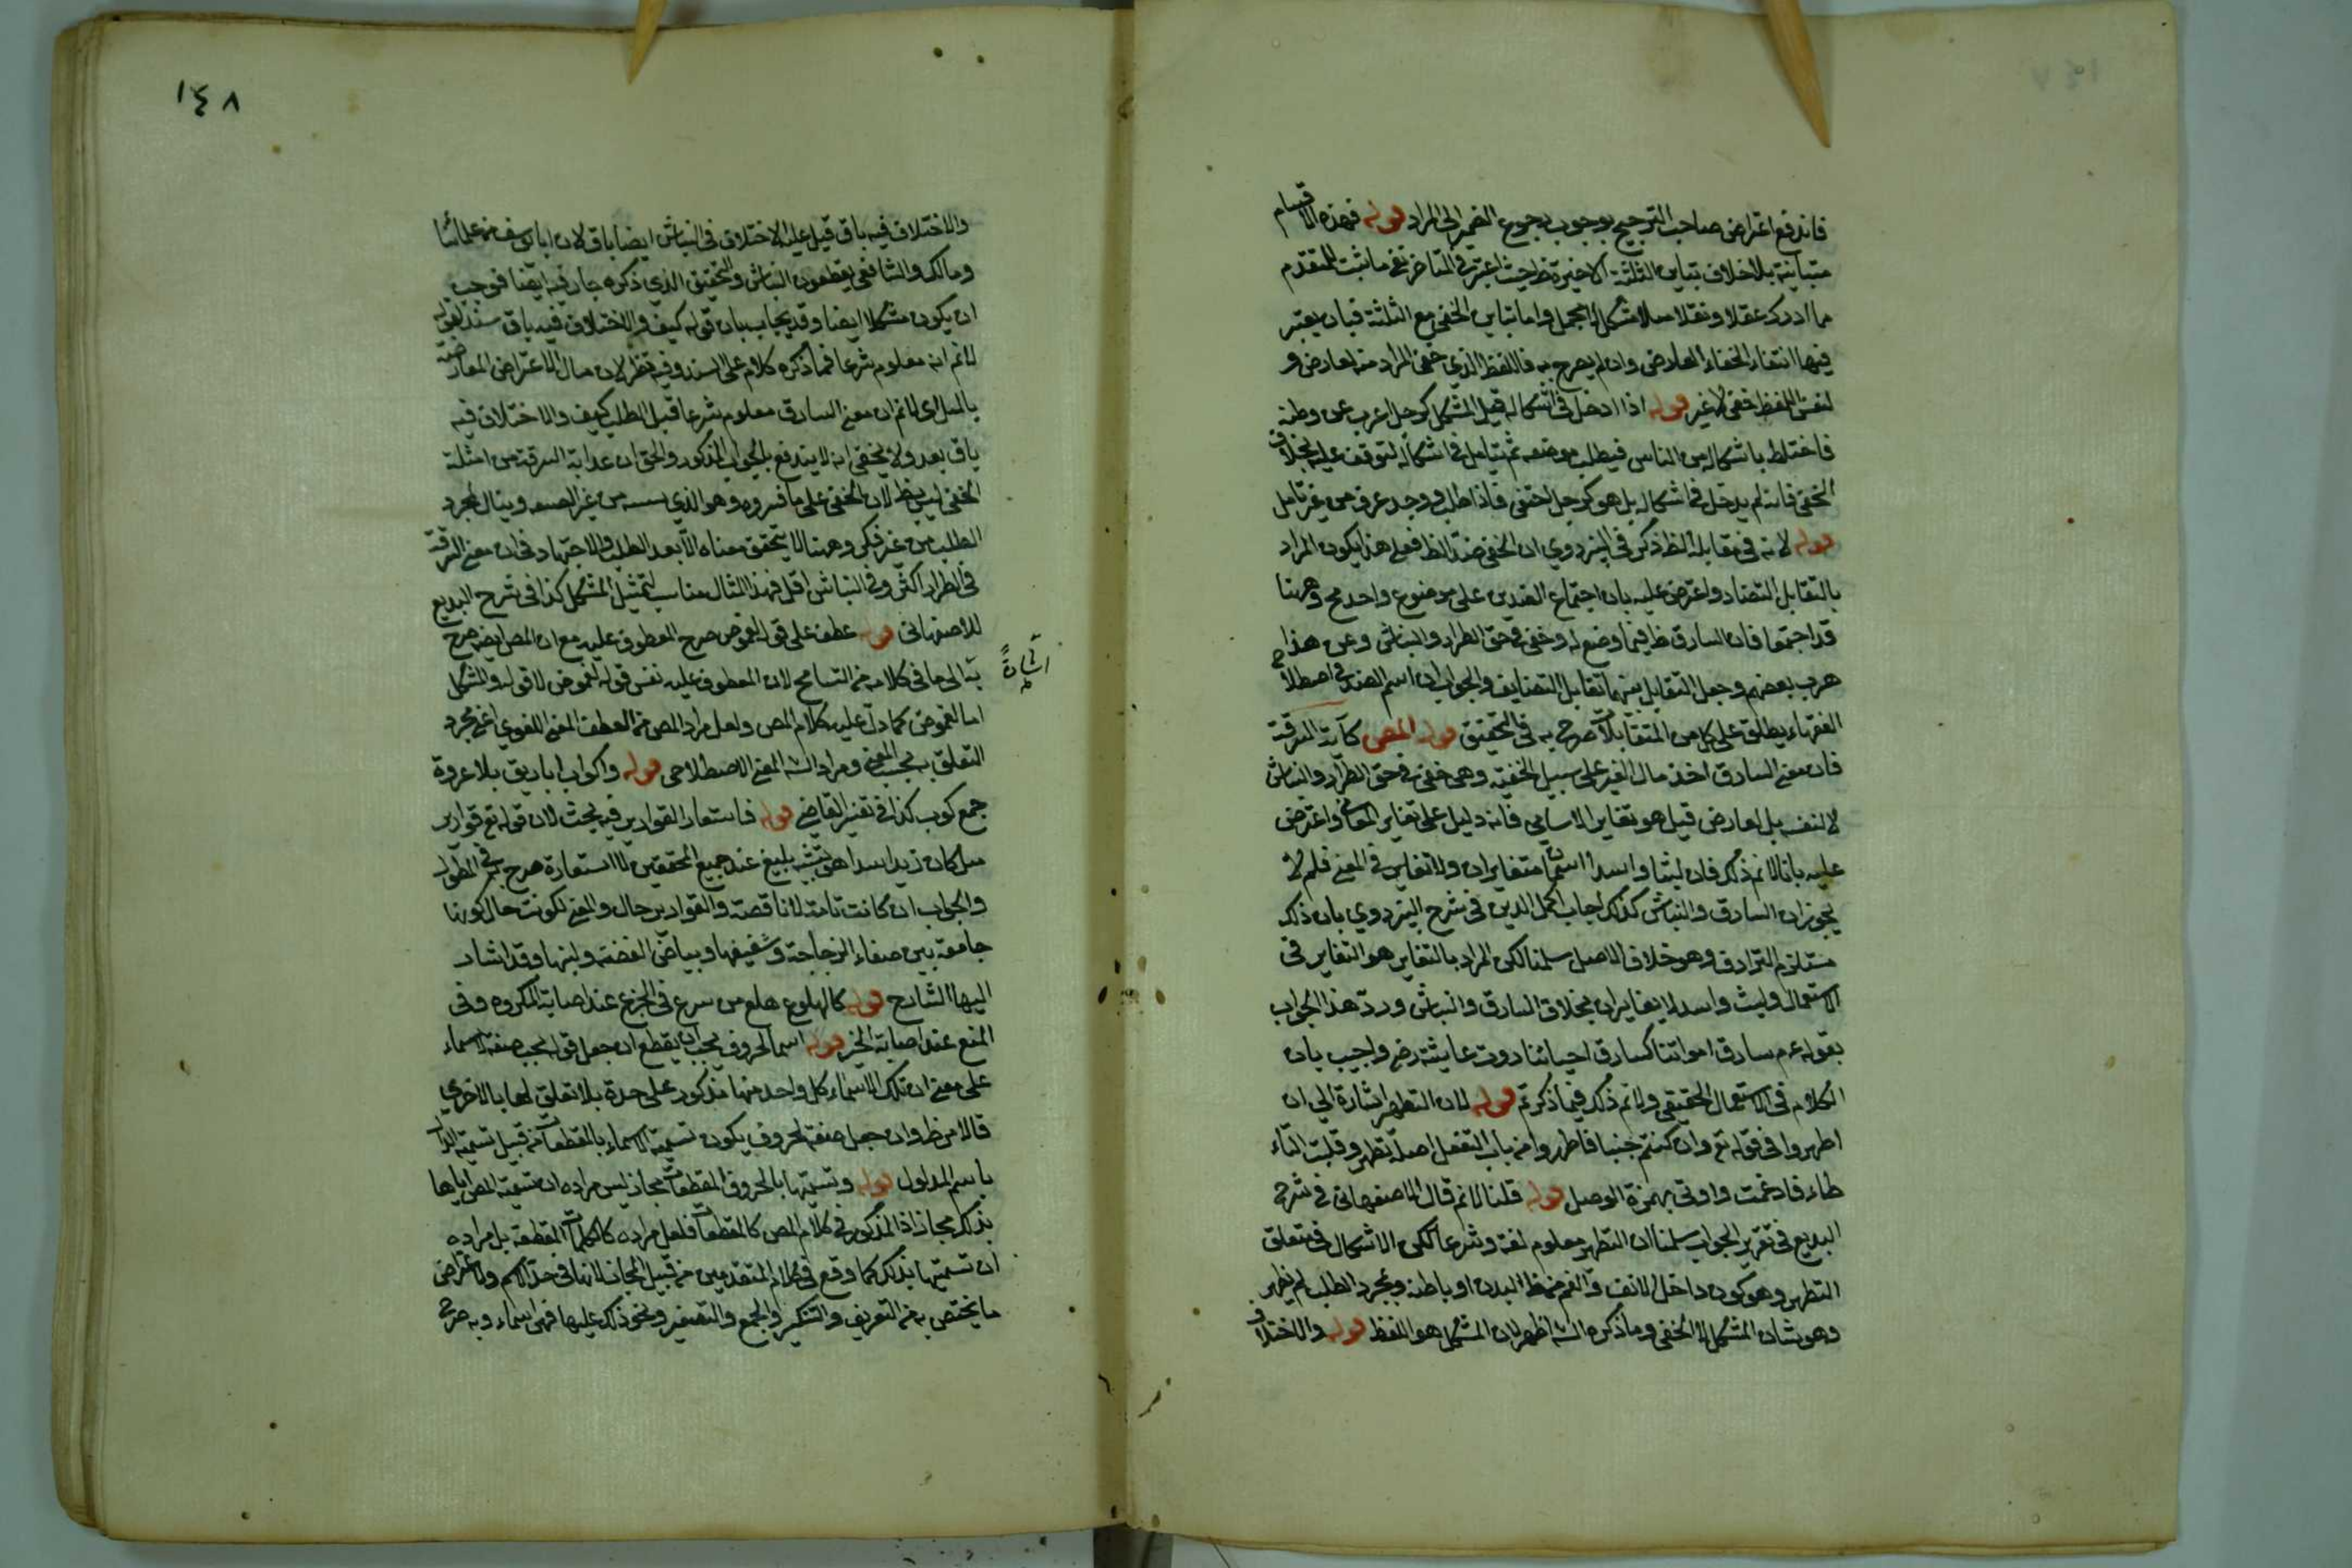 فاندفع اعتراض صاحب الترجيح بوجوب رجوع الضمير الى المراد قوله فهذه الاقسام
متباينة بلا خلاف تباين الثلثة الاخيرة ظ حيث اعتبر في المتأخر نفي ما ثبت للمتقدم
مما ادرك عقلا ونقلا المشكل المجمل واما تباين الخفي مع الثلثة فبان يعتبر
فيها انتفاء الخفاء العارض وان لم يصرح به فاللفظ الذي خفي المراد منه لعارض و
لنفس اللفظ خفي لا غير قوله اذا دخل في اشكاله قيل المشكل كرجل اغرب عن وطنه
فاختلط باشكاله من الناس فيطلب موضعه ثم يتأمل في اشكاله ليوقف عليه بخلاف
الخفي فانه لم يدخل في اشكاله بل هو كرجل اختفى فاذا طلب ووجد عرف من غير تأمل
قوله لانه في مقابلة الظ ذكر في البزدوي ان الخفي ضد الظ فعلى هذا يكون المراد
بالتقابل التضاد واعترض عليه بان اجتماع الضدين على موضوع واحد مح وههنا
قد اجتمعا فان السارق ظ فيما وضع له وخفي في حق الطرار والنباش وعن هذا
هرب بعضهم وجعل التقابل بينهما تقابل التضايف والجواب ان اسم الضد في اصطلاح
الفقهاء يطلق على كل من المتقابلات صرح به في التحقيق قوله المص كآية السرقة
فان معنى السارق اخذ مال الغير على سبيل الخفية وهي خفي في حق الطرار والنباش
لا لنفسه بل لعارض قيل هو تغاير الاسامي فانه دليل على تغاير المعاني واعترض
عليه بانا لا نم ذلك فان ليثا واسدا اسمان متغايران ولا تغاير في المعنى فلم لا
يجوز ان السارق والنباش كذلك اجاب اكمل الدين في شرح البزدوي بان ذلك
مستلزم الترادف وهو خلاف الاصل سلمنا لكن المراد بالتغاير هو التغاير في
الاستعمال وليث واسد لا يغايران بخلاف السارق والنباش ورد هذا الجواب
بقوله عم سارق امواتنا كسارق احيائنا روت عايشة رض واجيب بان
الكلام في الاستعمال الحقيقي ولا نم ذلك فيما ذكرتم قوله لان التطهر اشارة الى ان
اطهروا في قوله تع وان كنتم جنبا فاطهروا من باب التفعل اصله تطهر وقلبت التاء
طاء فادغمت واوتي بهمزة الوصل قوله قلنا لا نم قال الاصفهاني في شرح
البديع في تقرير الجواب سلمنا ان التطهر معلوم لغة وشرعا لكن الاشكال في متعلق
التطهر وهو كون داخل الانف والفم من ظ البدن او باطنه وبمجرد الطلب لم يظهر
وهو شان المشكل لا الخفي وما ذكره الش اظهر لان المشكل هو اللفظ قوله والاختلاف
١٤٨
والاختلاف فيه باق قيل عليه الاختلاف في النباش ايضا باق لان ابا يوسف من علمائنا
ومالك والشافعي يقطعون النباش والتحقيق الذي ذكره جار فيه ايضا فوجب
ان يكون مشكلا ايضا وقد يجاب بان قوله كيف والاختلاف فيه باق سند لقوله
لا نم انه معلوم شرعا فما ذكره كلام على السند وفيه نظر لان مال الاعتراض المعارضة
بالمثل اي لا نم ان معنى السارق معلوم شرعا قبل الطلب كيف والاختلاف فيه
باق بعد ولا يخفى انه لا يندفع بالجواب المذكور والحق ان عد اية السرقة من امثلة
الخفي ليس بظ لان الخفي على ما فسروه وهو الذي من غير الصيغة وينال بمجرد
الطلب من غير فكر وههنا لا يتحقق معناه الا بعد الطلب والاجتهاد في ان معنى السرقة
في الطرار اكثر وفي النباش اقل فهذا المثال مناسب لتمثيل المشكل كذا في شرح البديع
للاصفهاني قوله عطف على قوله لغموض صرح المعطوف عليه مع ان المص ايضا صرح
به الى ما في كلامه من التسامح لان المعطوف عليه نفس قوله لغموض لا قوله والمشكل
اشارة
اما لغموض كما دل عليه كلام المص ولعل مراد المص من العطف المعنى اللغوي اعني مجرد
التعلق به بحسب المعنى ومراد الش المعنى الاصطلاحي قوله واكواب اباريق بلا عروة
جمع كوب كذا في تفسير القاضي قوله فاستعار القوارير فيه بحث لان قوله تع قوارير
مثل كان زيد اسدا هو تشبيه بليغ عند جميع المحققين لا استعارة صرح به في المطول
والجواب ان كانت تامة لا ناقصة والقوارير حال والمعنى لكونت حال كونها
جامعة بين صفاء الزجاجة وشفيفها وبياض الفضة ولينها وقد اشار
اليها الشارح قوله كالهلوع هلع من سرع في الجزع عند اصابة المكروه وفي
المنع عند اصابة الخير قوله اسما لحروف يجب ان يقطع ان جعل قوله يجب صفة الاسماء
على معنى ان تلك الاسماء كل واحد منها مذكور على حدة بلا تعلق لها بالاخرى
فالامر ظ وان جعل صفة لحروف يكون تسمية الاسماء بالمقطعات من قبيل تسمية الدال
باسم المدلول قوله وتسميتها بالحروف المقطعات مجاز ليس مراده ان تسمية المص اياها
بذلك مجاز اذ المذكور في كلام المص كالمقطعات فلعل مراده كالكلمات المقطعة بل مراده
ان تسميتها بذلك كما وقع في كلام المتقدمين من قبيل المجاز لانها في حد الاسم ولاعتراض
ما يختص به من التعريف والتنكير والجمع والتصغير ونحو ذلك عليها فهي اسماء وبه صرح